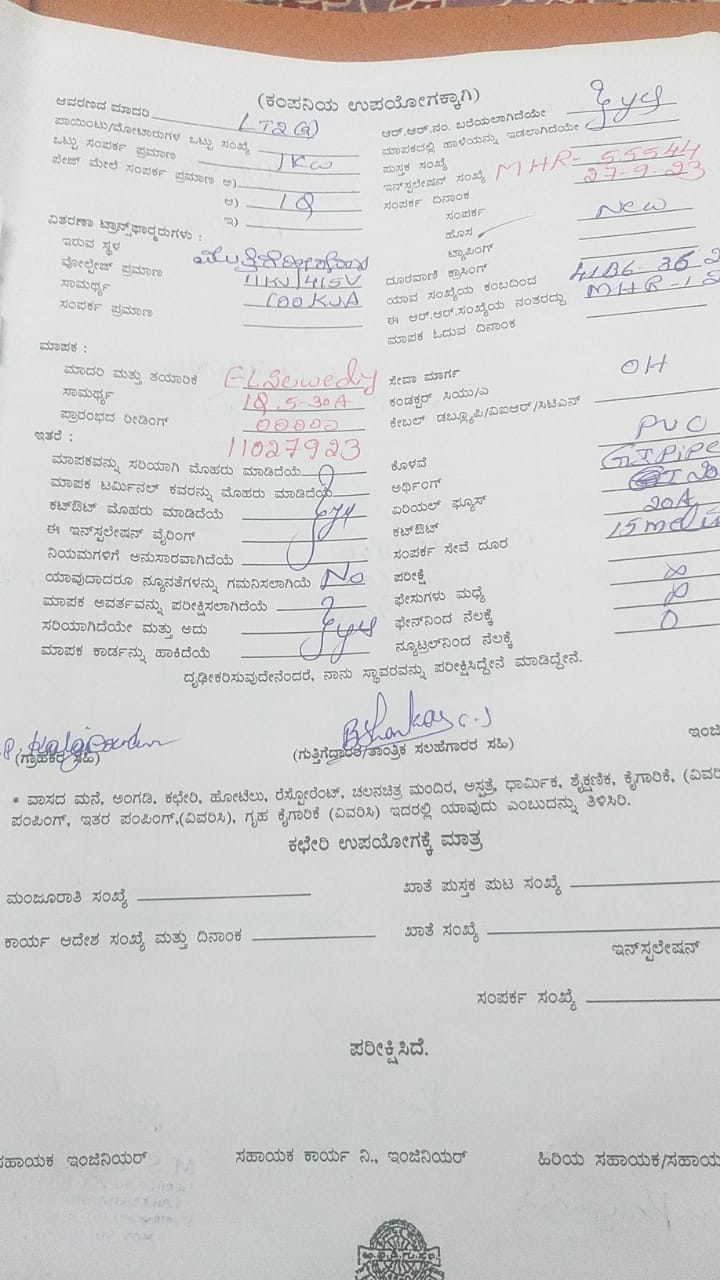 (ಕಂಪನಿಯ ಉಪಯೋಗಕ್ಕಾಗಿ)
ಆವರಣದ ಮಾದರಿ LT2(a)
ಪಾಯಿಂಟು/ಮೋಟಾರುಗಳ ಒಟ್ಟು ಸಂಖ್ಯೆ
ಒಟ್ಟು ಸಂಪರ್ಕ ಪ್ರಮಾಣ 1KW
ಪೇಜ್ ಮೇಲೆ ಸಂಪರ್ಕ ಪ್ರಮಾಣ ಅ)
ಆ) 1Q
ಇ)
ವಿತರಣಾ ಟ್ರಾನ್ಸ್‌ಫಾರ್ಮರುಗಳು :
ಇರುವ ಸ್ಥಳ
ವೋಲ್ಟೇಜ್ ಪ್ರಮಾಣ 11KV/415V
ಸಾಮರ್ಥ್ಯ 100KVA
ಸಂಪರ್ಕ ಪ್ರಮಾಣ
ಆರ್.ಆರ್.ನಂ. ಬರೆಯಲಾಗಿದೆಯೇ
ಮಾಪಕದಲ್ಲಿ ಹಾಳೆಯನ್ನು ಇಡಲಾಗಿದೆಯೇ } yes
ಪುಸ್ತಕ ಸಂಖ್ಯೆ
ಇನ್‌ಸ್ಟಲೇಷನ್ ಸಂಖ್ಯೆ MHR-55544
ಸಂಪರ್ಕ ದಿನಾಂಕ 27-9-23
ಸಂಪರ್ಕ
ಹೊಸ New
ಟ್ಯಾಪಿಂಗ್
ದೂರವಾಣಿ ಕ್ರಾಸಿಂಗ್
ಯಾವ ಸಂಖ್ಯೆಯ ಕಂಬದಿಂದ
ಈ ಆರ್.ಆರ್.ಸಂಖ್ಯೆಯ ನಂತರದ್ದು
ಮಾಪಕ ಓದುವ ದಿನಾಂಕ
ಮಾಪಕ :
ಮಾದರಿ ಮತ್ತು ತಯಾರಿಕೆ ELSewedy
ಸಾಮರ್ಥ್ಯ 1Q 5-30A
ಪ್ರಾರಂಭದ ರೀಡಿಂಗ್ 00000
ಇತರೆ : 11027923
ಮಾಪಕವನ್ನು ಸರಿಯಾಗಿ ಮೊಹರು ಮಾಡಿದೆಯೆ
ಮಾಪಕ ಟರ್ಮಿನಲ್ ಕವರನ್ನು ಮೊಹರು ಮಾಡಿದೆಯೆ
ಕಟ್‌ಔಟ್ ಮೊಹರು ಮಾಡಿದೆಯೆ
ಈ ಇನ್‌ಸ್ಟಲೇಷನ್ ವೈರಿಂಗ್
ನಿಯಮಗಳಿಗೆ ಅನುಸಾರವಾಗಿದೆಯೆ
ಯಾವುದಾದರೂ ನ್ಯೂನತೆಗಳನ್ನು ಗಮನಿಸಲಾಗಿಯೆ No
ಮಾಪಕ ಅವರ್ತವನ್ನು ಪರೀಕ್ಷಿಸಲಾಗಿದೆಯೆ
ಸರಿಯಾಗಿದೆಯೇ ಮತ್ತು ಅದು yes
ಮಾಪಕ ಕಾರ್ಡನ್ನು ಹಾಕಿದೆಯೆ
ಸೇವಾ ಮಾರ್ಗ OH
ಕಂಡಕ್ಟರ್ ಸಿಯು/ಎ
ಕೇಬಲ್ ಡಬ್ಲ್ಯೂಪಿ/ವಿಐಆರ್/ಸಿಟಿಎನ್
ಕೊಳವೆ PVC
ಅರ್ಥಿಂಗ್ GI Pipe
ಏರಿಯಲ್ ಫ್ಯೂಸ್
ಕಟ್‌ಔಟ್ 20A
ಸಂಪರ್ಕ ಸೇವೆ ದೂರ
ಪರೀಕ್ಷೆ
ಫೇಸುಗಳು ಮಧ್ಯೆ ∞
ಫೇಸ್‌ನಿಂದ ನೆಲಕ್ಕೆ ∞
ನ್ಯೂಟ್ರಲ್‌ನಿಂದ ನೆಲಕ್ಕೆ 0
ದೃಢೀಕರಿಸುವುದೇನೆಂದರೆ, ನಾನು ಸ್ಥಾವರವನ್ನು ಪರೀಕ್ಷಿಸಿದ್ದೇನೆ ಮಾಡಿದ್ದೇನೆ.
(ಗ್ರಾಹಕರ ಸಹಿ)
(ಗುತ್ತಿಗೆದ್ದಾರಕ/ತಾಂತ್ರಿಕ ಸಲಹೆಗಾರರ ಸಹಿ)
ಇಂಜಿ
* ವಾಸದ ಮನೆ, ಅಂಗಡಿ, ಕಛೇರಿ, ಹೋಟೆಲು, ರೆಸ್ಟೋರೆಂಟ್, ಚಲನಚಿತ್ರ ಮಂದಿರ, ಅಸ್ಪತ್ರೆ, ಧಾರ್ಮಿಕ, ಶೈಕ್ಷಣಿಕ, ಕೈಗಾರಿಕೆ, (ವಿವರಿ
ಪಂಪಿಂಗ್, ಇತರ ಪಂಪಿಂಗ್,(ವಿವರಿಸಿ), ಗೃಹ ಕೈಗಾರಿಕೆ (ವಿವರಿಸಿ) ಇದರಲ್ಲಿ ಯಾವುದು ಎಂಬುದನ್ನು ತಿಳಿಸಿರಿ.
ಕಛೇರಿ ಉಪಯೋಗಕ್ಕೆ ಮಾತ್ರ
ಮಂಜೂರಾತಿ ಸಂಖ್ಯೆ
ಖಾತೆ ಪುಸ್ತಕ ಪುಟ ಸಂಖ್ಯೆ
ಕಾರ್ಯ ಆದೇಶ ಸಂಖ್ಯೆ ಮತ್ತು ದಿನಾಂಕ
ಖಾತೆ ಸಂಖ್ಯೆ
ಇನ್‌ಸ್ಟಲೇಷನ್
ಸಂಪರ್ಕ ಸಂಖ್ಯೆ
ಪರೀಕ್ಷಿಸಿದೆ.
ಸಹಾಯಕ ಇಂಜಿನಿಯರ್
ಸಹಾಯಕ ಕಾರ್ಯ ನಿ., ಇಂಜಿನಿಯರ್
ಹಿರಿಯ ಸಹಾಯಕ/ಸಹಾಯ